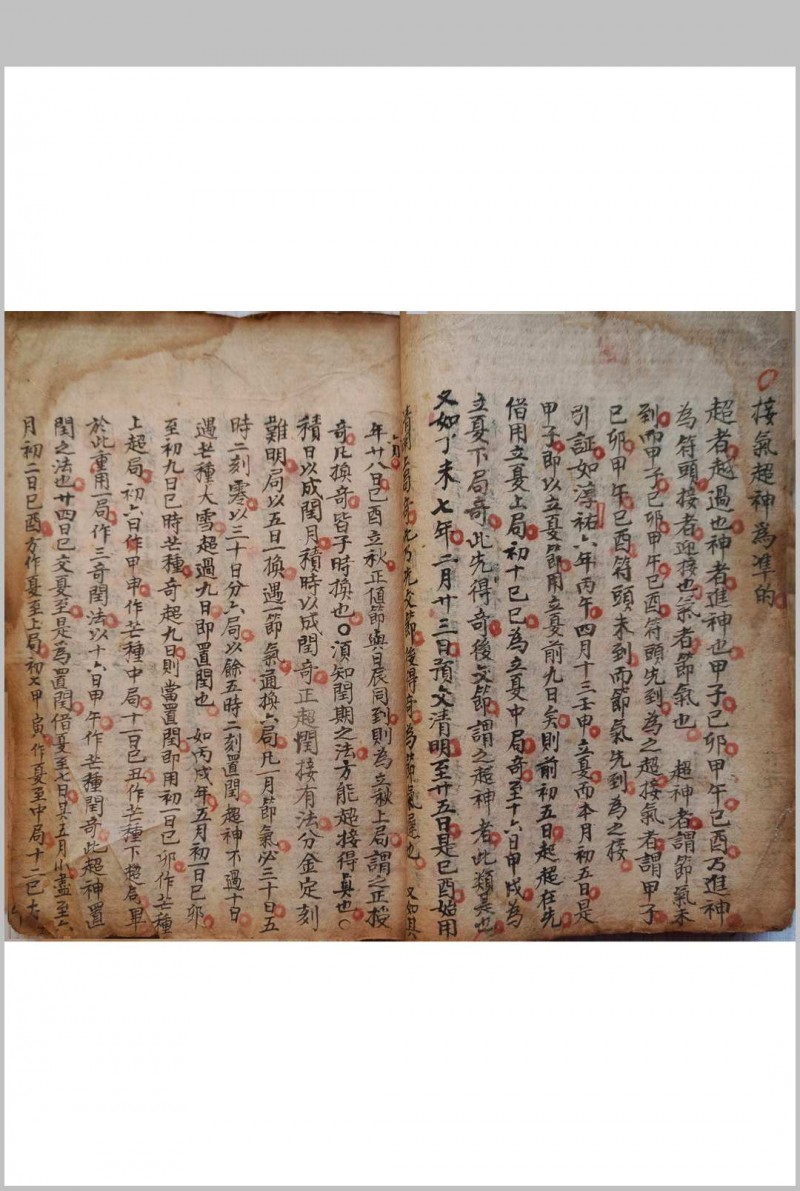 接氣超神為準的
超者越過也神者進神也甲子己卯甲午己酉乃進神
為符頭接者迎接也氣者節氣也 超神者謂節氣未
到而甲子己卯甲午己酉符頭先到為之超接氣者謂甲子
己卯甲午己酉符頭未到而節氣先到為之接
引証如淳祐六年丙午四月十三壬申立夏而本月初五日是
甲子即以立夏節用立夏前九日矣則前初五日起超在先
借用立夏上局初十己巳為立夏中局奇至十六日甲戌為
立夏下局奇此先得奇後交節謂之超神者此類是也
又如丁未七年二月廿三日預交清明至廿五日是己酉始用
清明上局奇此乃先交節後得奇為節氣遲也 又如其
年六月廿八日己酉立秋正值節與日辰同到則為立秋上局謂之正授
奇凡換奇皆子時換也〇須知閏期之法方能超接得真也〇
積日以成閏月積時以成閏奇正超閏接有法分金定刻
難明局以五日一換遇一節氣通換六局凡一月節氣必三十日五
時二刻零以三十日分六局以餘五時二刻置閏超神不過十日
遇芒種大雪超過九日即置閏也 如丙戌年五月初一日己卯
至初九日巳時芒種奇超九日則當置閏即用初一日己卯作芒種
上超局初六日作甲申作芒種中局十一日己丑作芒種下超局畢
於此重用一局作三奇閏法以十六日甲午作芒種閏奇此超神置
閏之法也廿四日巳交夏至是為置閏借夏至七日其五月小盡至六
月初二日己酉方作夏至上局初七甲寅作夏至中局十二己未